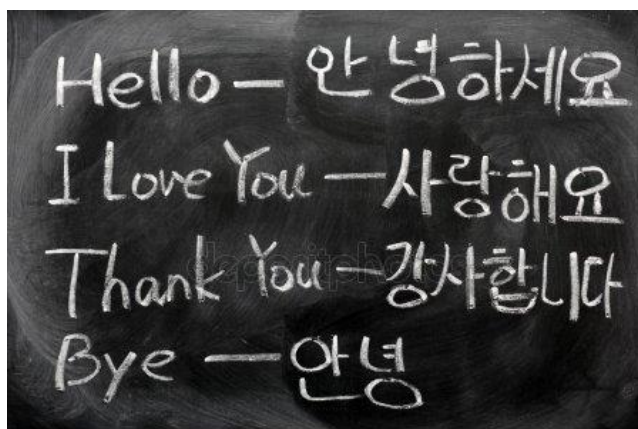 Hello – 안녕하세요
I Love You – 사랑해요
Thank You – 강사합니다
Bye – 안녕
depositphotos